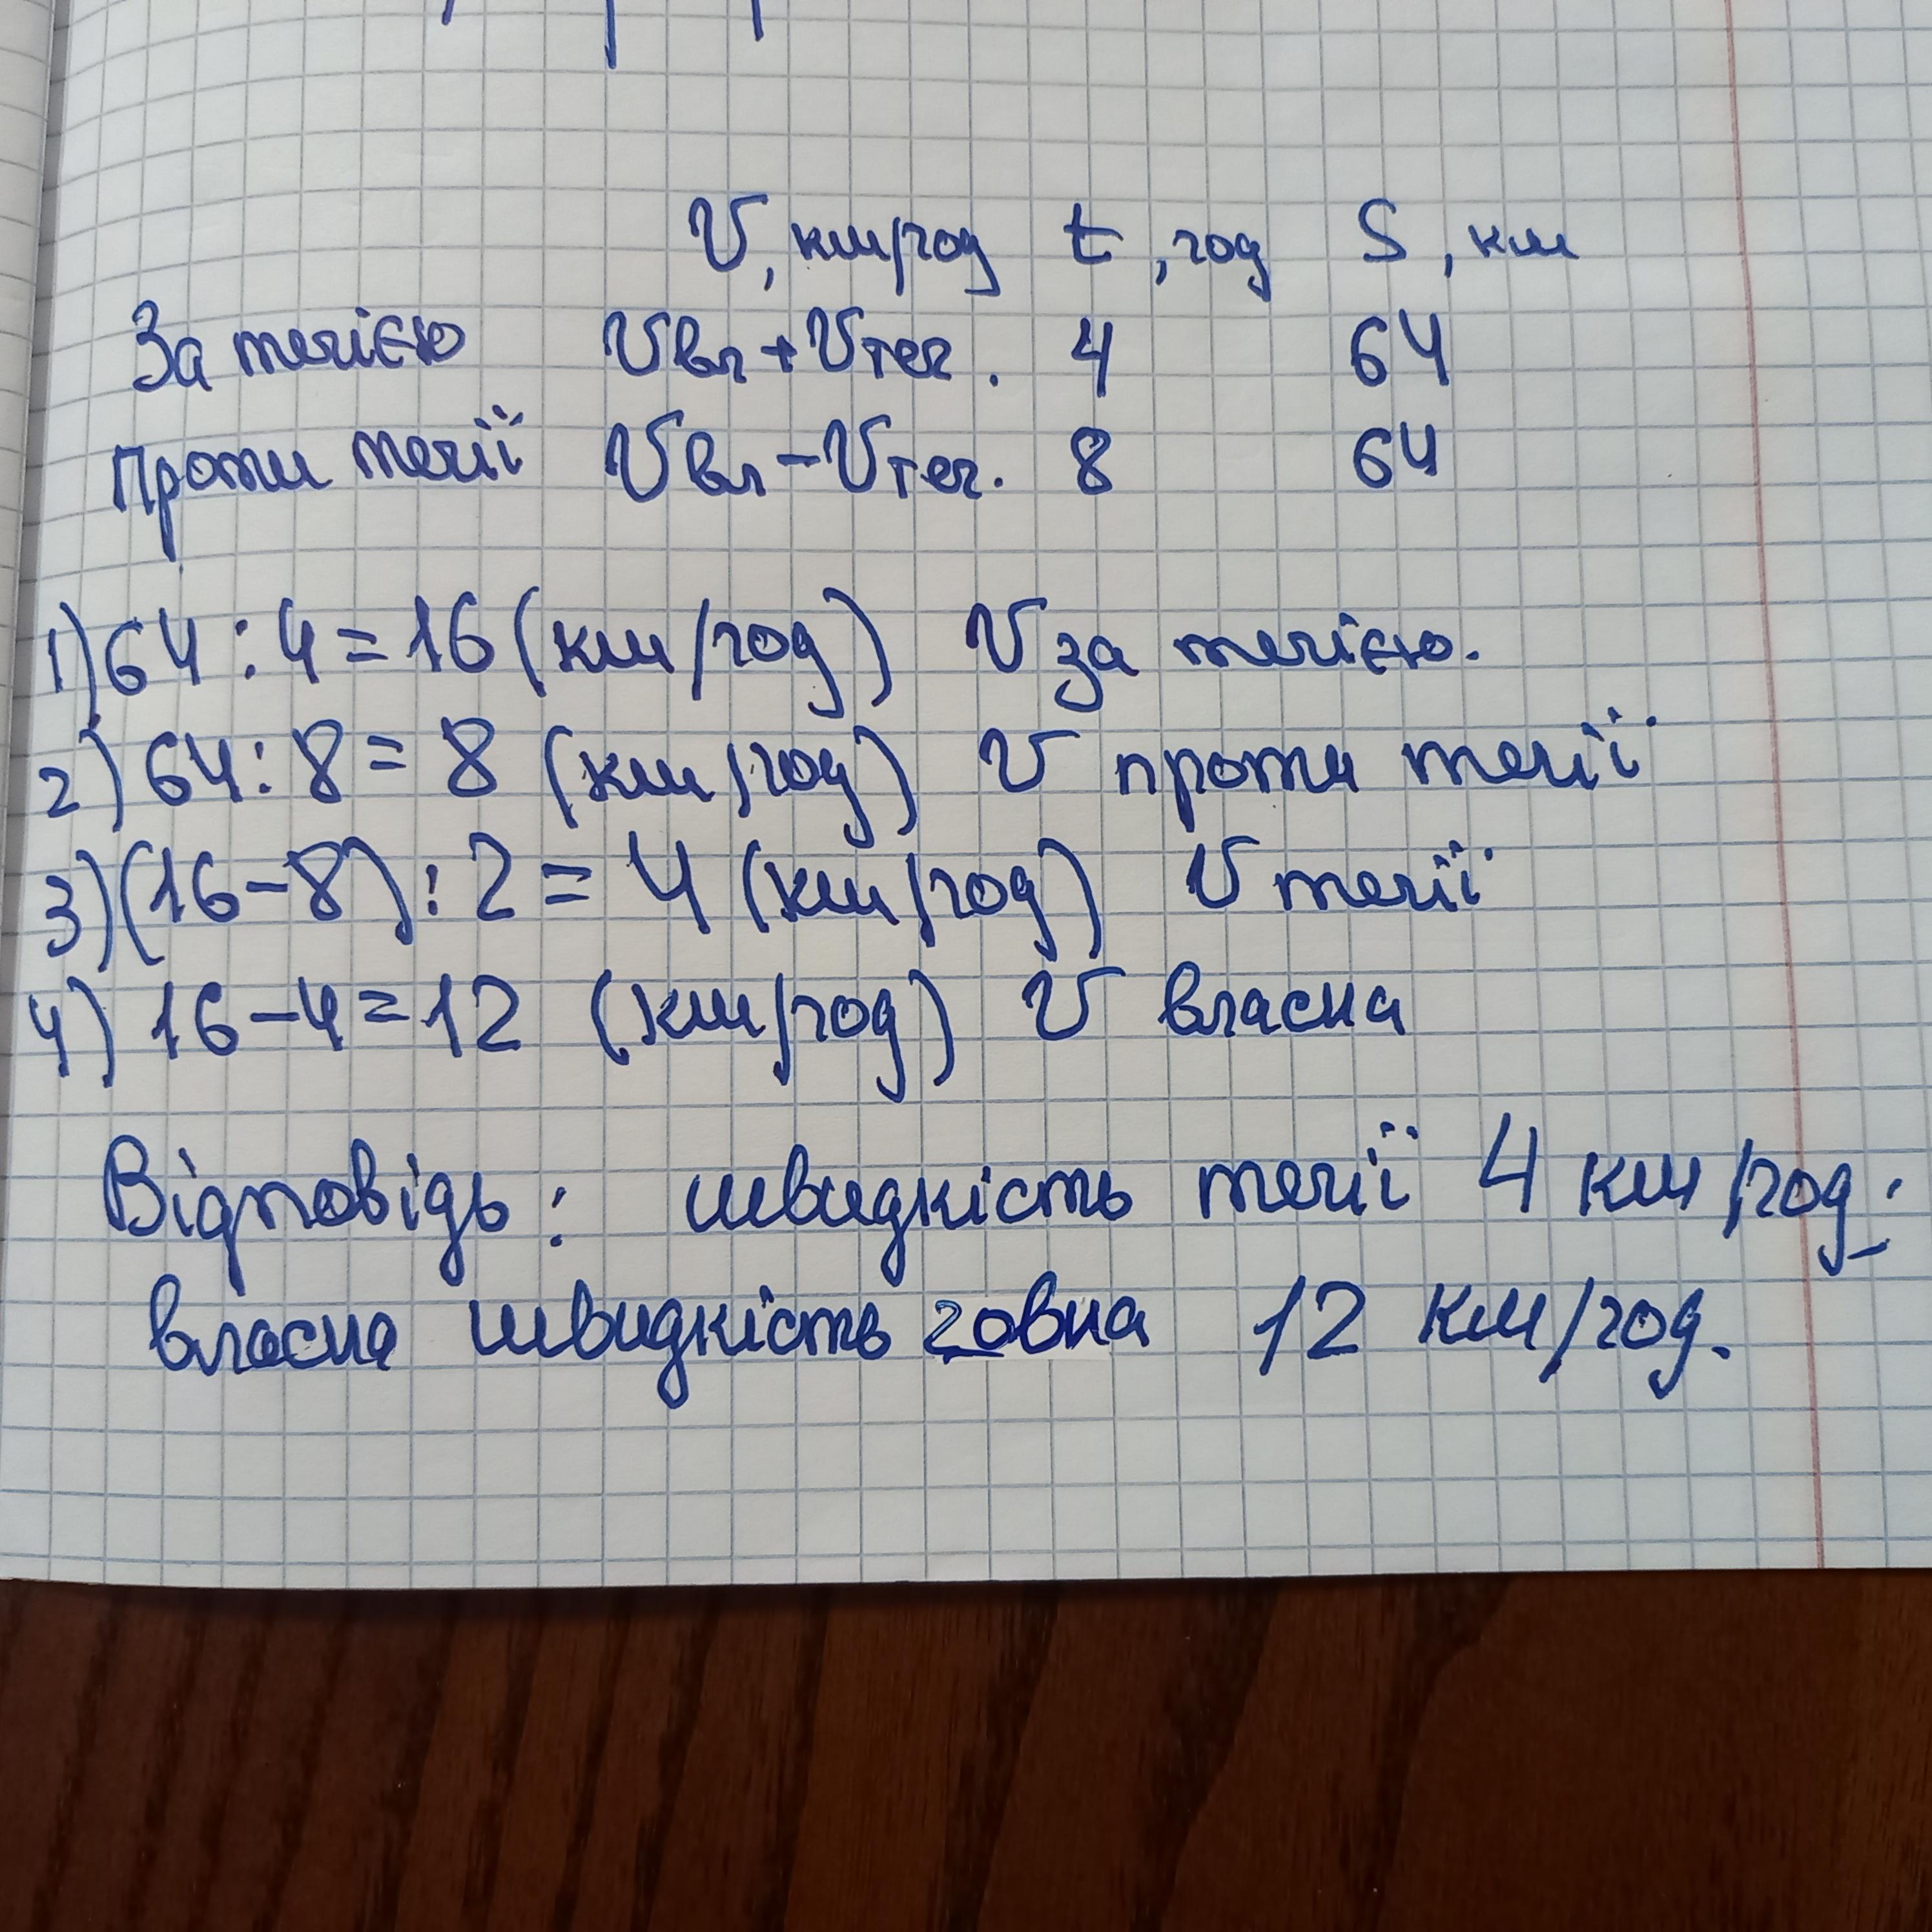 V, км/год t, год S, км
За течією Vвл+Vтеч. 4 64
Проти течії Vвл-Vтеч. 8 64
1) 64:4=16 (км/год) V за течією.
2) 64:8=8 (км/год) V проти течії
3) (16-8):2=4 (км/год) V течії
4) 16-4=12 (км/год) V власна
Відповідь: швидкість течії 4 км/год;
власна швидкість човна 12 км/год.